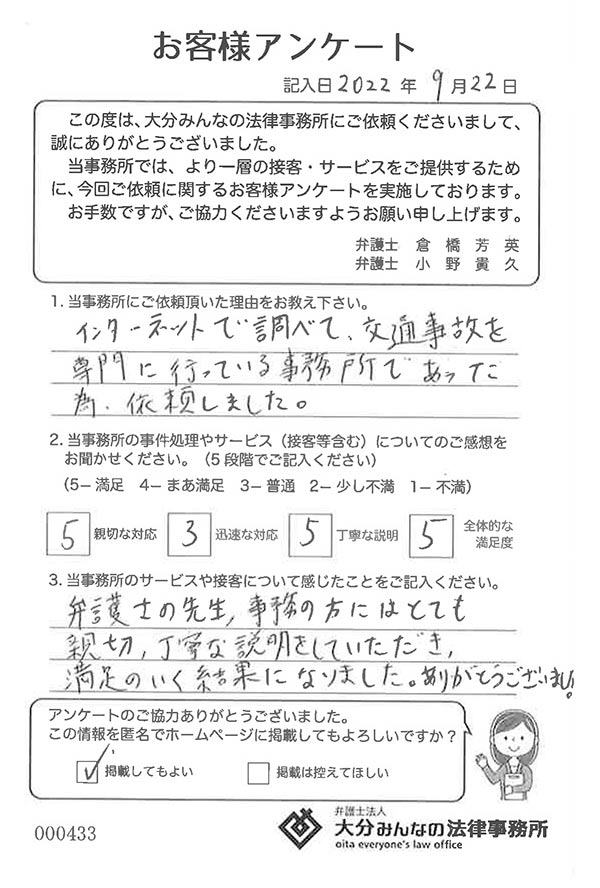 お客様アンケート
記入日2022年 9月22日
この度は、大分みんなの法律事務所にご依頼くださいまして、
誠にありがとうございました。
当事務所では、より一層の接客・サービスをご提供するため
に、今回ご依頼に関するお客様アンケートを実施しております。
お手数ですが、ご協力くださいますようお願い申し上げます。
弁護士 倉橋芳英
弁護士 小野貴久
1. 当事務所にご依頼頂いた理由をお教え下さい。
インターネットで調べて、交通事故を
専門に行っている事務所であった
為、依頼しました。
2. 当事務所の事件処理やサービス（接客等含む）についてのご感想を
お聞かせください。（5段階でご記入ください）
（5－満足 4－まあ満足 3－普通 2－少し不満 1－不満）
5 親切な対応 3 迅速な対応 5 丁寧な説明 5 全体的な
満足度
3. 当事務所のサービスや接客について感じたことをご記入ください。
弁護士の先生, 事務の方にはとても
親切, 丁寧な説明をしていただき,
満足のいく結果になりました。ありがとうございました!
アンケートのご協力ありがとうございました。
この情報を匿名でホームページに掲載してもよろしいですか？
✓ 掲載してもよい □ 掲載は控えてほしい
000433
弁護士法人
大分みんなの法律事務所
oita everyone's law office